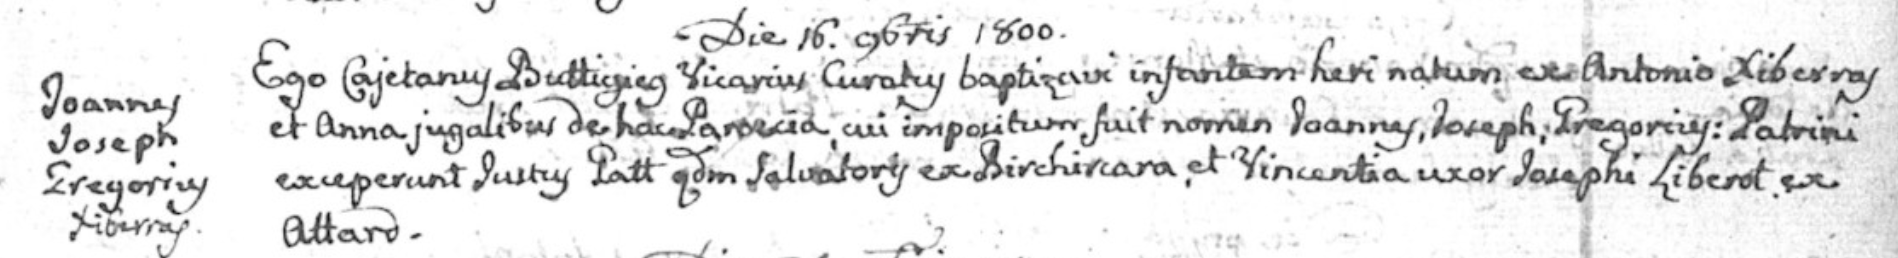 Die 16. 9bris 1800.
Joannes
Joseph
Gregorius
Xiberras.
Ego Cajetanus Buttigieg Vicarius Curatus baptizavi infantem heri natum ex Antonio Xiberras
et Anna jugalibus de hac Paroecia, cui impositum fuit nomen Joannes, Joseph, Gregorius: Patrini
exceperunt Justus Patt qdm Salvatoris ex Birchircara, et Vincentia uxor Josephi Liberot ex
Attard.